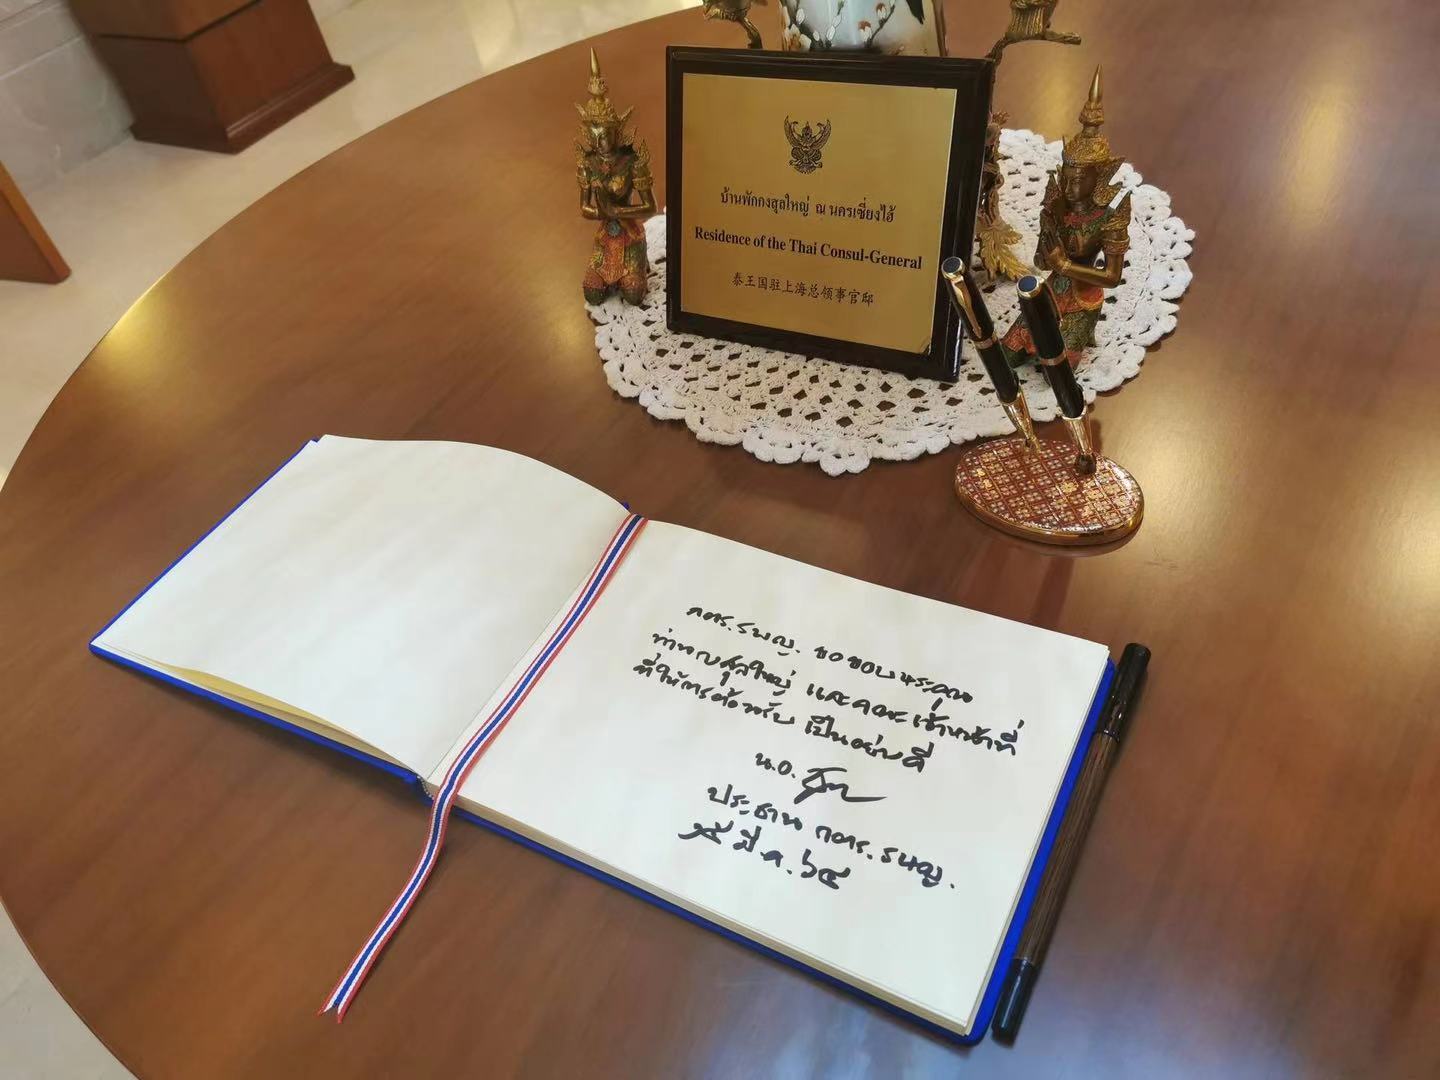 บ้านพักกงสุลใหญ่ ณ นครเซี่ยงไฮ้
Residence of the Thai Consul-General
泰王国驻上海总领事官邸
กตร. รพญ. ขอขอบพระคุณ
ท่านกงสุลใหญ่ และคณะเจ้าหน้าที่
ที่ให้การต้อนรับ เป็นอย่างดี
น.อ.
ประธาน กตร. รพญ.
มี.ค. ๖๔